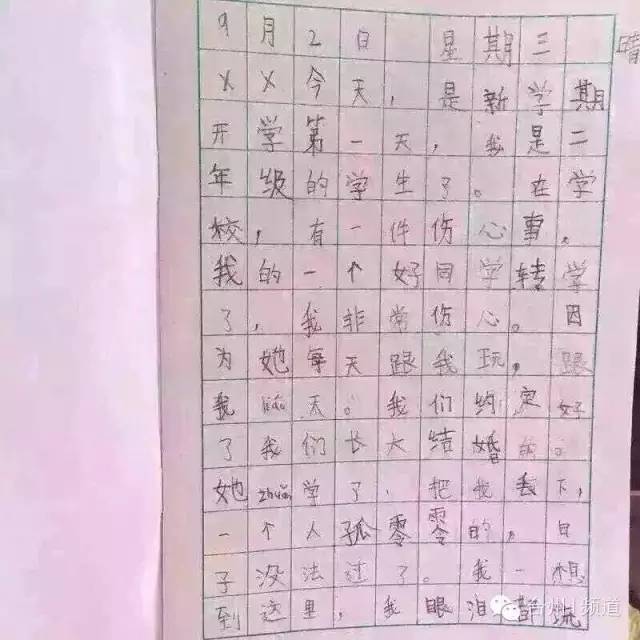 9月2日 星期三 晴
XX今天，是新学期
开学第一天，我是二
年级的学生了。在学
校，有一件伤心事。
我的一个好同学转学
了，我非常伤心。因
为她每天跟我玩，跟
我liáo天。我们约定好
了我们长大结婚的。
她zhuǎn学了，把我丢下，
一个人孤零零的，日
子没法过了。我一想
到这里，我眼泪都流
台州1频道